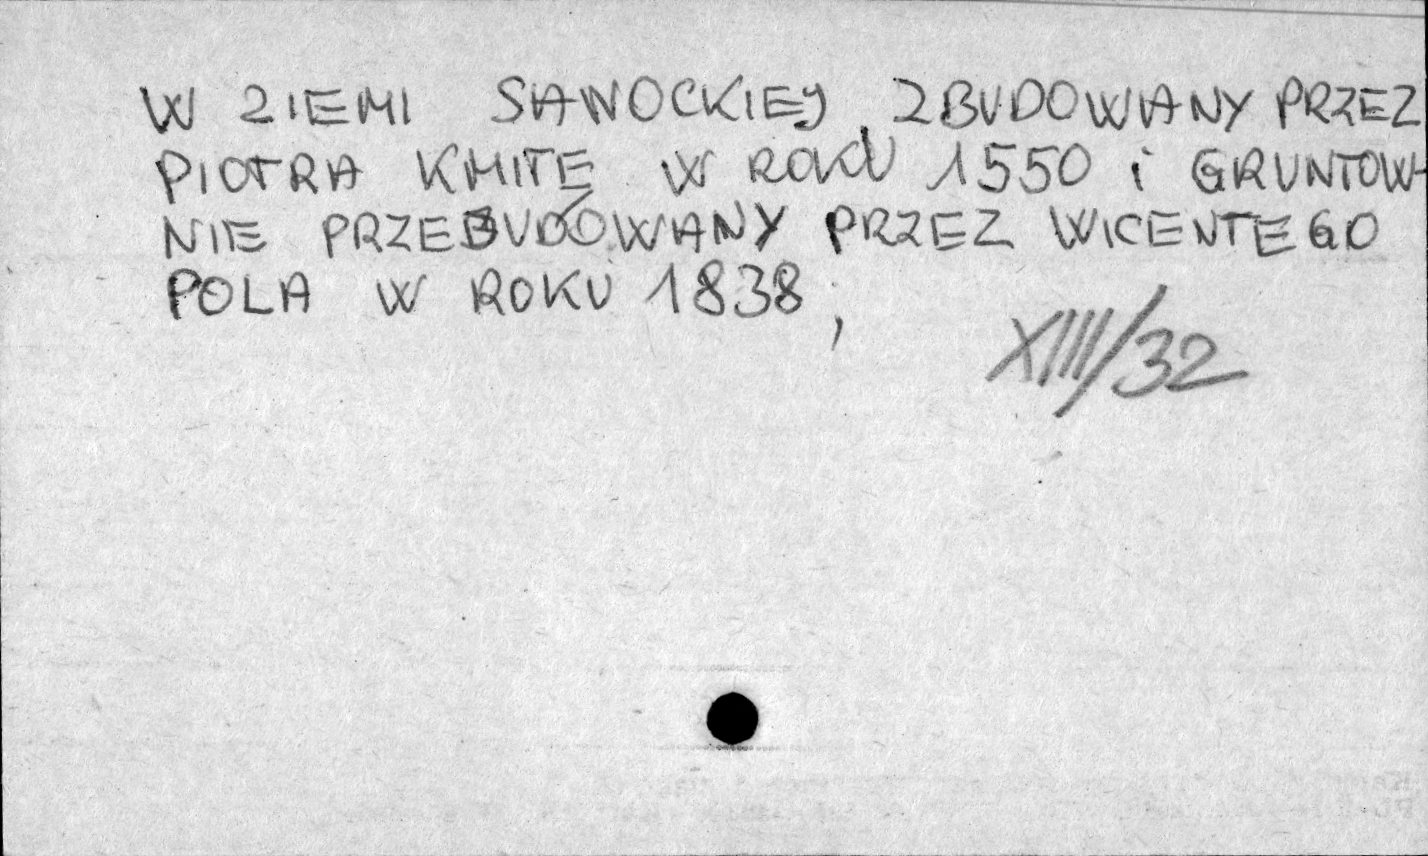 W ZIEMI SANOCKIEY ZBUDOWANY PRZEZ
PIOTRA KMITĘ W ROKU 1550 i GRUNTOW-
NIE PRZEBUDOWANY PRZEZ WICENTEGO
POLA W ROKU 1838,
XIII/32